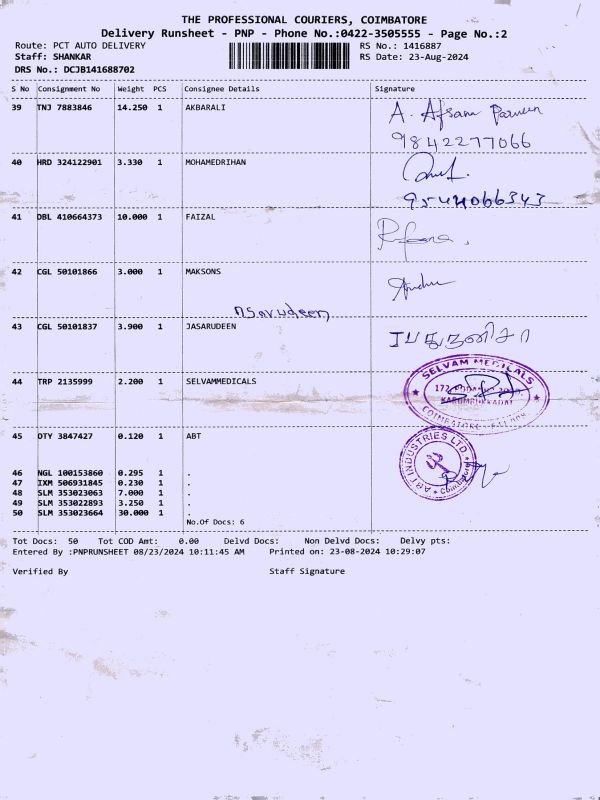 THE PROFESSIONAL COURIERS, COIMBATORE
Delivery Runsheet - PNP - Phone No.:0422-3505555 - Page No.:2
Route: PCT AUTO DELIVERY RS No.: 1416887
Staff: SHANKAR RS Date: 23-Aug-2024
DRS No.: DCJB141688702
S No Consignment No Weight PCS Consignee Details Signature
39 TNJ 7883846 14.250 1 AKBARALI A. Afsana Parveen
9842277066
40 HRD 324122901 3.330 1 MOHAMEDRIHAN
9544066343
41 DBL 410664373 10.000 1 FAIZAL
42 CGL 50101866 3.000 1 MAKSONS
nsarudeen
43 CGL 50101837 3.900 1 JASARUDEEN
SELVAM MEDICALS
44 TRP 2135999 2.200 1 SELVAMMEDICALS
COIMBATORE
45 DTY 3847427 0.120 1 ABT
ABT INDUSTRIES LTD
46 NGL 100153860 0.295 1 .
47 IXM 506931845 0.230 1 .
48 SLM 353023063 7.000 1 .
49 SLM 353022893 3.250 1 .
50 SLM 353023664 30.000 1 .
No.Of Docs: 6
Tot Docs: 50 Tot COD Amt: 0.00 Delvd Docs: Non Delvd Docs: Delvy pts:
Entered By :PNPRUNSHEET 08/23/2024 10:11:45 AM Printed on: 23-08-2024 10:29:07
Verified By Staff Signature